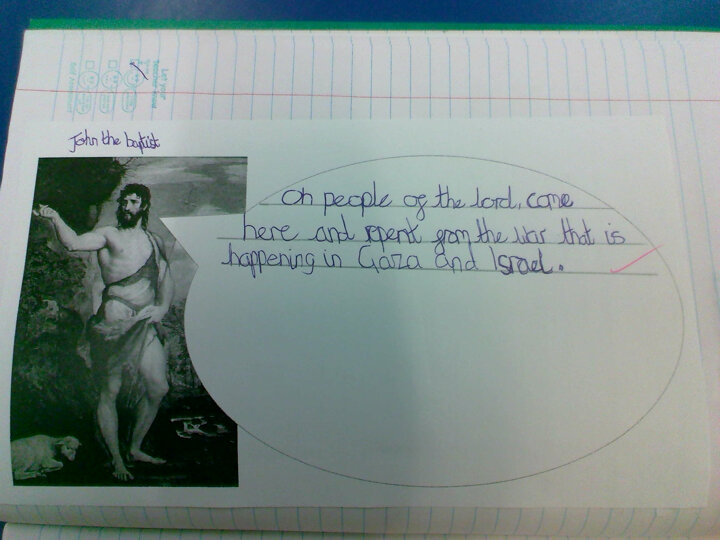 John the baptist
Oh people of the lord, come
here and repent from the war that is
happening in Gaza and Israel.